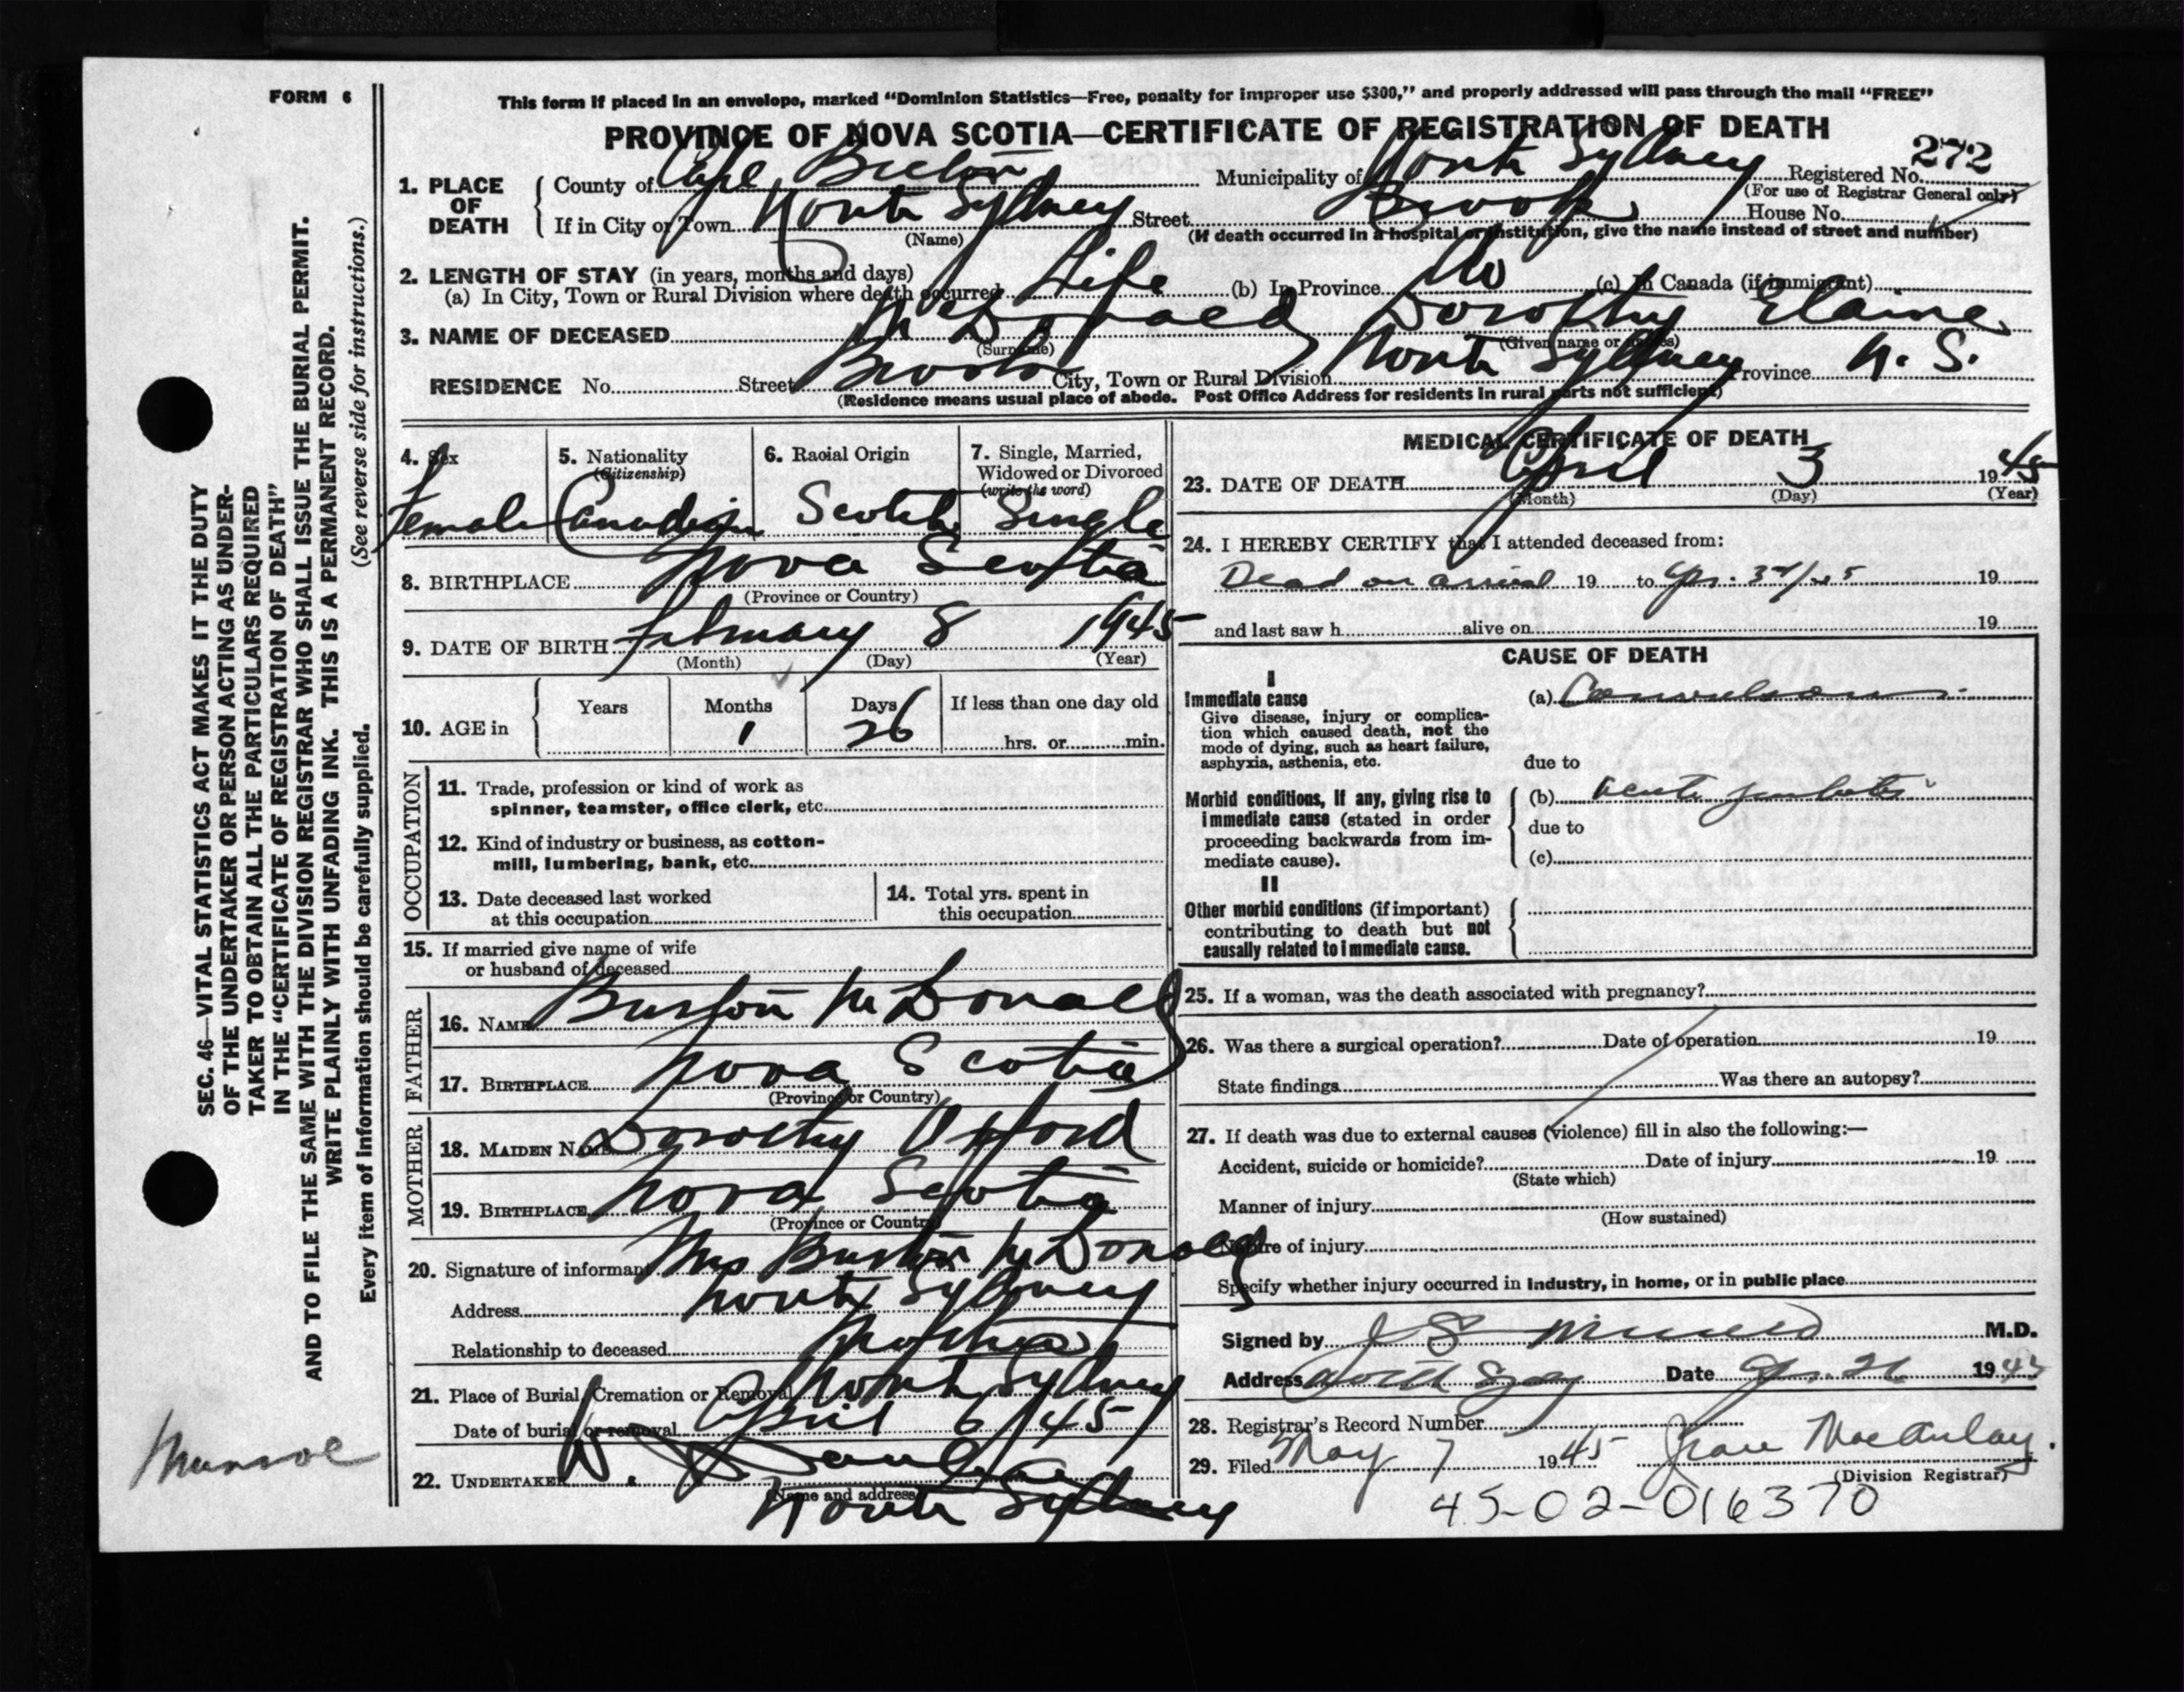 FORM 6
This form if placed in an envelope, marked “Dominion Statistics—Free, penalty for improper use $300,” and properly addressed will pass through the mail “FREE”
PROVINCE OF NOVA SCOTIA—CERTIFICATE OF REGISTRATION OF DEATH
272
1. PLACE OF DEATH County of Cape Breton Municipality of North Sydney Registered No.
(For use of Registrar General only)
If in City or Town North Sydney Street Brook House No.
(Name) (If death occurred in a hospital or institution, give the name instead of street and number)
2. LENGTH OF STAY (in years, months and days)
(a) In City, Town or Rural Division where death occurred Life (b) In Province Do (c) In Canada (if immigrant)
3. NAME OF DECEASED McDonald Dorothy Elaine
(Surname) (Given name or names)
RESIDENCE No. Street Brook City, Town or Rural Division North Sydney Province N. S.
(Residence means usual place of abode. Post Office Address for residents in rural parts not sufficient)
4. Sex 5. Nationality 6. Racial Origin 7. Single, Married,
(Citizenship) Widowed or Divorced
(write the word)
Female Canadian Scotch Single
8. BIRTHPLACE Nova Scotia
(Province or Country)
9. DATE OF BIRTH February 8 1945
(Month) (Day) (Year)
10. AGE in Years Months Days If less than one day old
1 26 hrs. or min.
OCCUPATION
11. Trade, profession or kind of work as
spinner, teamster, office clerk, etc.
12. Kind of industry or business, as cotton-
mill, lumbering, bank, etc.
13. Date deceased last worked
at this occupation
14. Total yrs. spent in
this occupation
15. If married give name of wife
or husband of deceased
FATHER
16. NAME Burton McDonald
17. BIRTHPLACE Nova Scotia
(Province or Country)
MOTHER
18. MAIDEN NAME Dorothy
19. BIRTHPLACE Nova Scotia
(Province or Country)
20. Signature of informant Mrs Burton McDonald
Address North Sydney
Relationship to deceased Mother
21. Place of Burial, Cremation or Removal North Sydney
Date of burial or removal April 6/45
22. UNDERTAKER
(Name and address)
North Sydney
MEDICAL CERTIFICATE OF DEATH
23. DATE OF DEATH April 3 1945
(Month) (Day) (Year)
24. I HEREBY CERTIFY that I attended deceased from:
Dead on arrival 19 to Apr. 3rd/45 19
and last saw h alive on 19
CAUSE OF DEATH
I
Immediate cause
Give disease, injury or complica-
tion which caused death, not the
mode of dying, such as heart failure,
asphyxia, asthenia, etc.
(a) Convulsions
due to
Morbid conditions, if any, giving rise to
immediate cause (stated in order
proceeding backwards from im-
mediate cause).
(b) Acute
due to
(c)
II
Other morbid conditions (if important)
contributing to death but not
causally related to immediate cause.
25. If a woman, was the death associated with pregnancy?
26. Was there a surgical operation? Date of operation 19
State findings Was there an autopsy?
27. If death was due to external causes (violence) fill in also the following:—
Accident, suicide or homicide? Date of injury 19
(State which)
Manner of injury
(How sustained)
Nature of injury
Specify whether injury occurred in industry, in home, or in public place
Signed by J S M.D.
Address North Sydney Date Apr. 26 1945
28. Registrar's Record Number
29. Filed May 7 1945 Jean MacAulay.
(Division Registrar)
45-02-016370
SEC. 46—VITAL STATISTICS ACT MAKES IT THE DUTY
OF THE UNDERTAKER OR PERSON ACTING AS UNDER-
TAKER TO OBTAIN ALL THE PARTICULARS REQUIRED
IN THE “CERTIFICATE OF REGISTRATION OF DEATH”
AND TO FILE THE SAME WITH THE DIVISION REGISTRAR WHO SHALL ISSUE THE BURIAL PERMIT.
WRITE PLAINLY WITH UNFADING INK. THIS IS A PERMANENT RECORD.
Every item of information should be carefully supplied. (See reverse side for instructions.)
Munroe